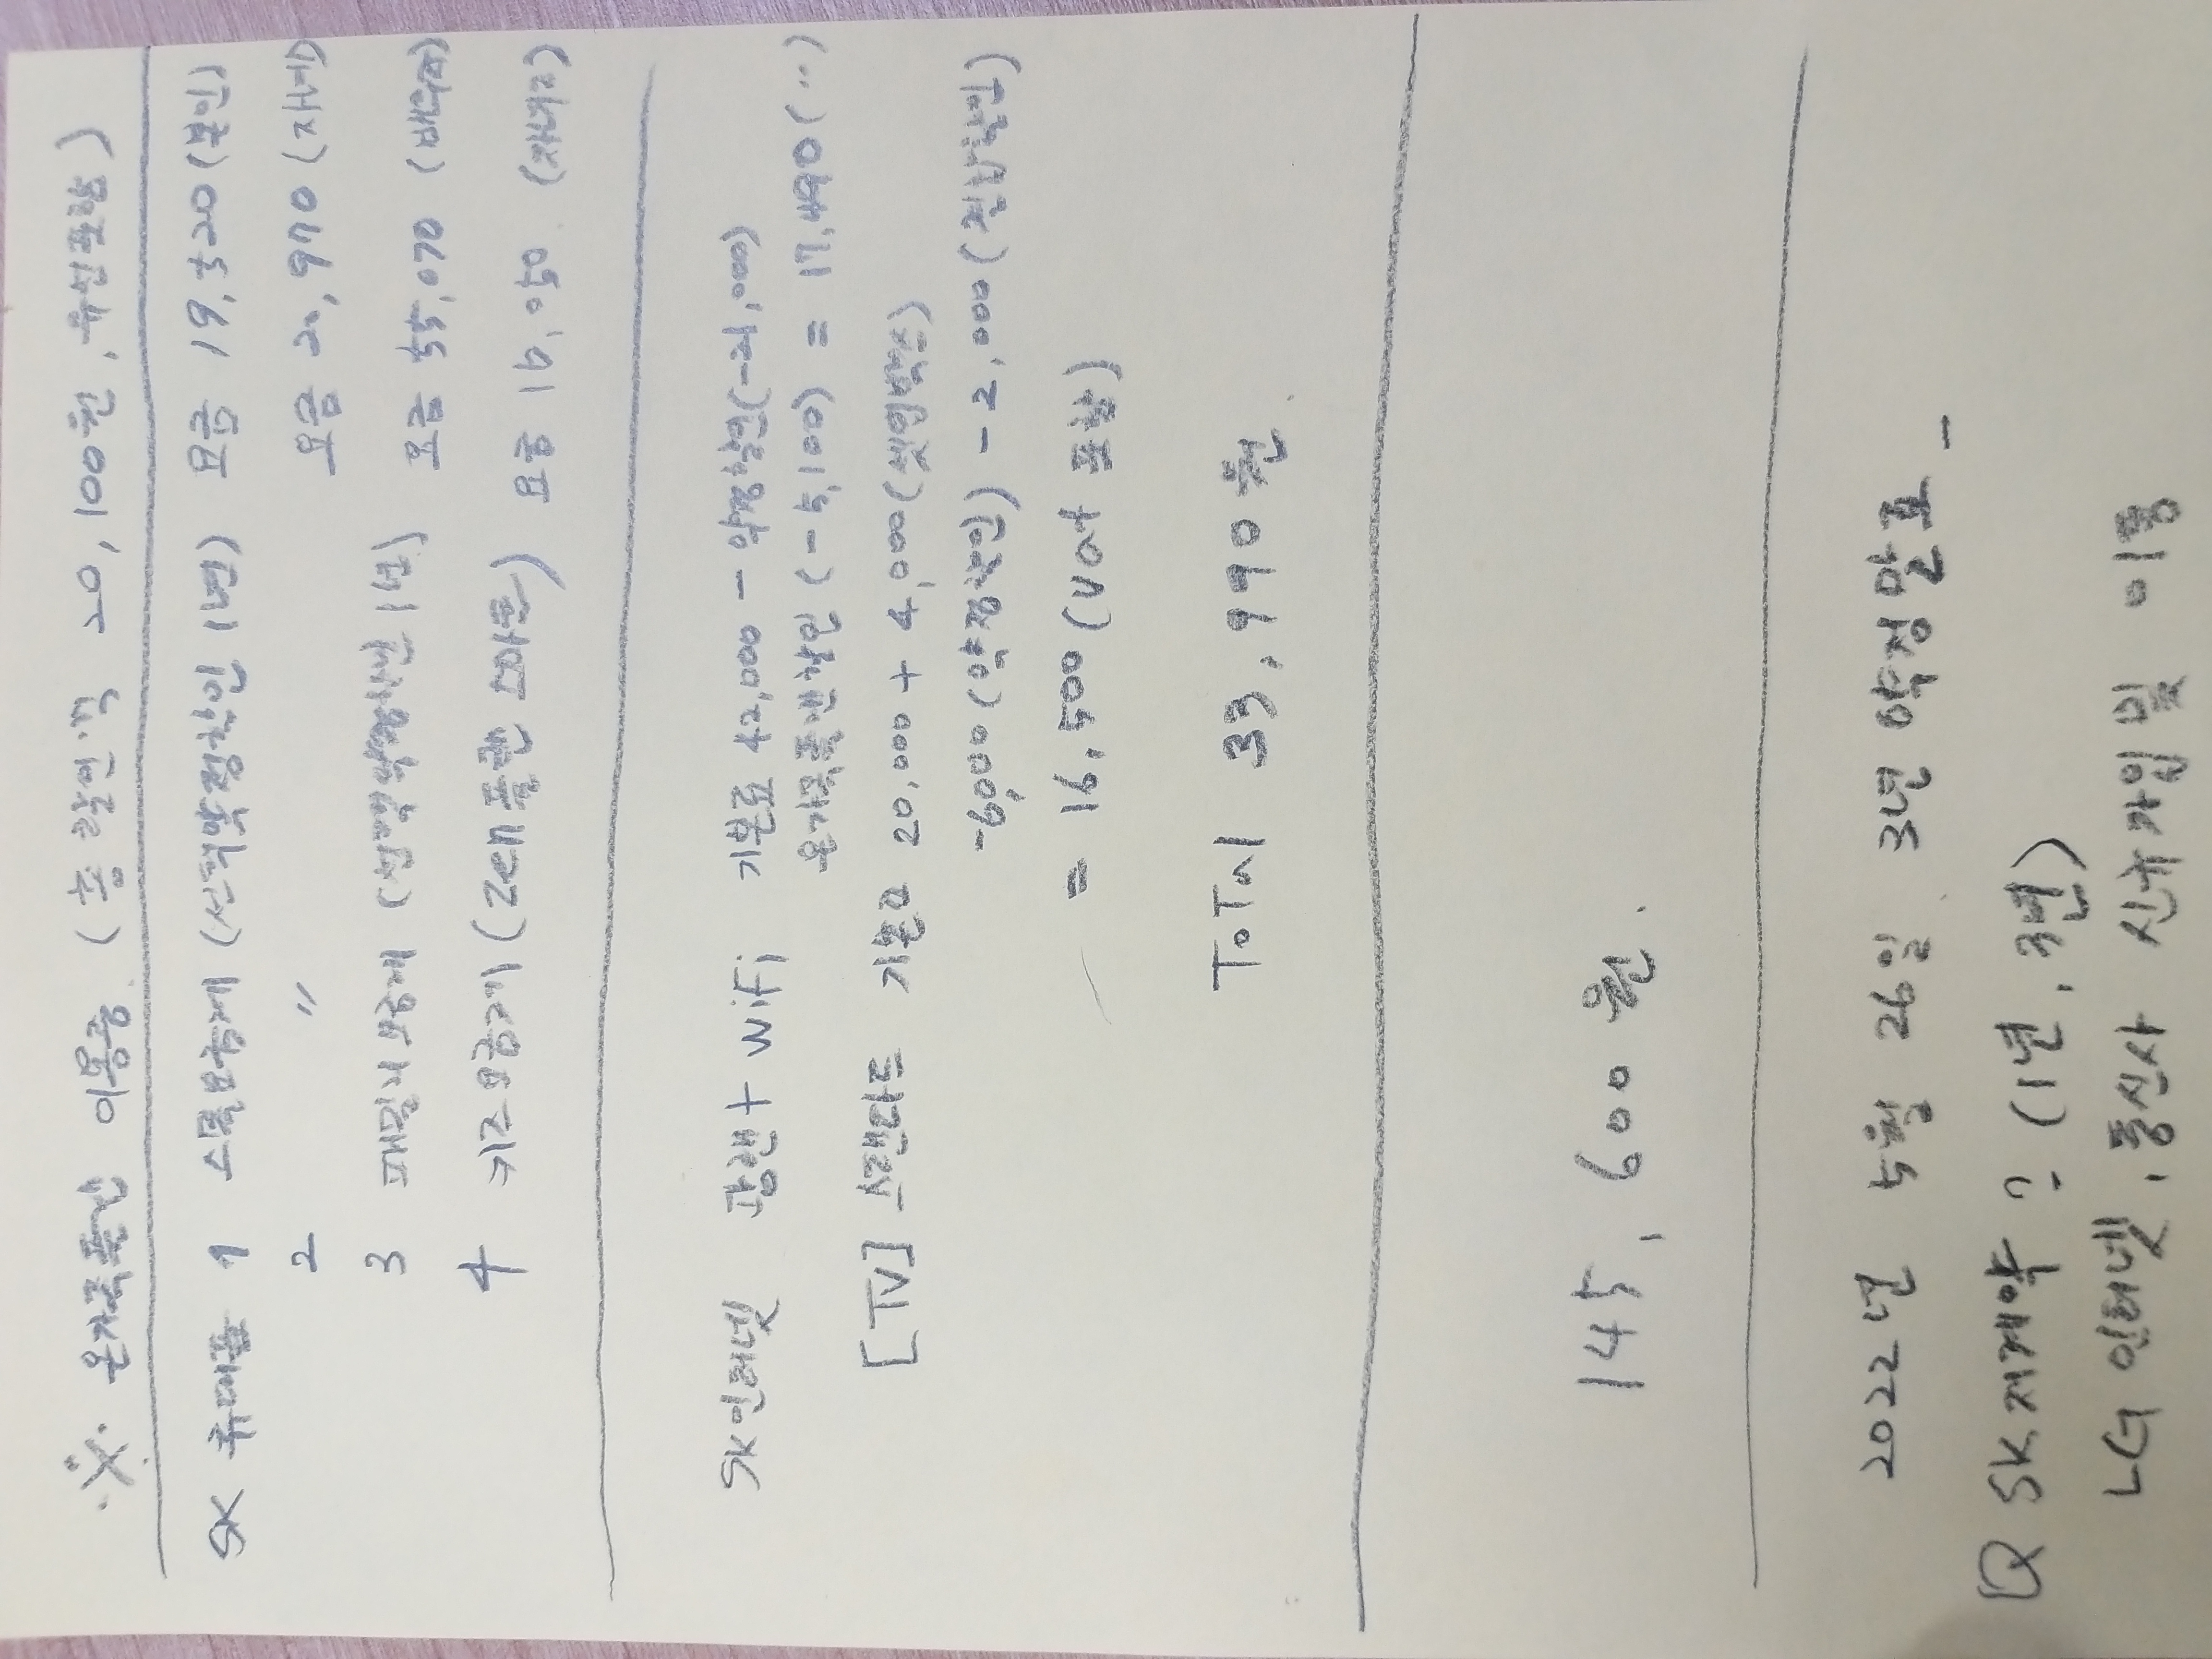 ※. 온가족플랜 이용중. (총 할인액 20,100원, 유선포함)
SK 휴대폰 1 스몰요금제 (선택약정할인 1년) 요금 19,320 (본인)
2 〃 요금 20,970 (자녀)
3 패밀리요금제 (선택약정할인 1년) 요금 55,070 (배우자)
4 키즈요금제 (Zem플랜 퍼펙트) 요금 16,050 (자녀2)
SK인터넷 광랜 + WiFi 기본료 42,000 - 약정할인(-21,000)
온가족플랜할인 (-5,100) = 17,490 (〃)
[TV] 스탠다드 기본료 20,000 + 4,000 (셋탑박스)
-6,000 (약정할인) - 2,000 (결합할인)
= 16,500 (Vat 포함)
ToTal 33,990원.
145,600원.
2022년 5월 26일. 3년 약정만료 -
Q SK재계약? (1년, 3년)
LG 인터넷, 통신사 신규가입 및 이동